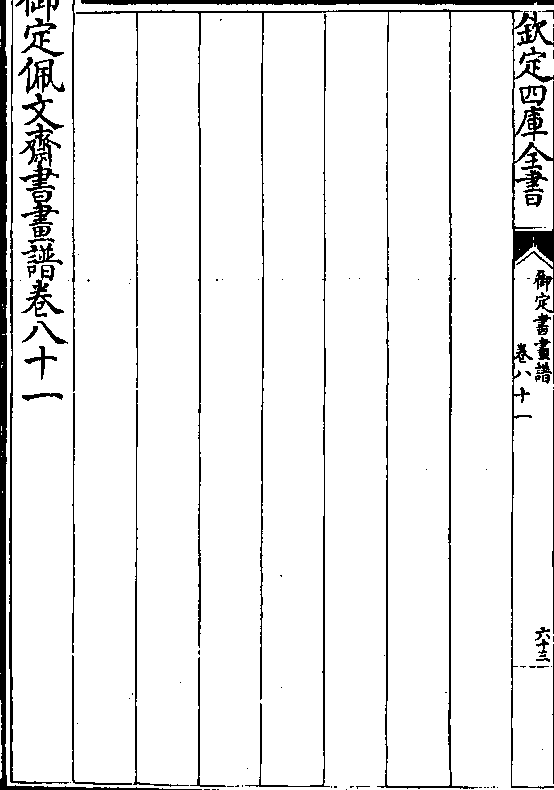 欽定四庫全書
御定書畫譜
卷八十一
六十三
御定佩文齋書畫譜卷八十一